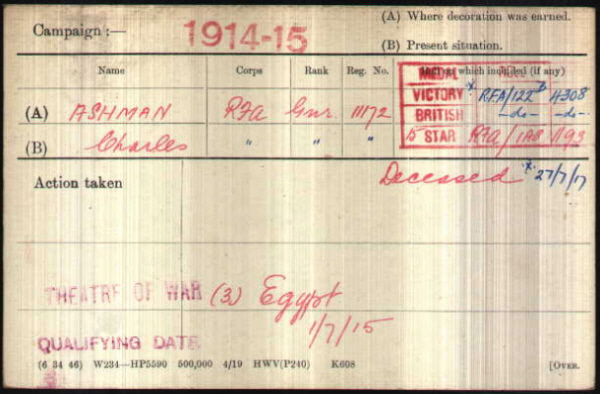 (A) Where decoration was earned.
Campaign :— 1914-15
(B) Present situation.
Name Corps Rank Reg. No. which included (if any)
MEDAL
(A) ASHMAN RFA Gnr. 11172 VICTORY * RFA/122 B 4308
BRITISH —do— —do—
(B) Charles " " " 15 STAR RFA/ 193
Action taken Deceased * 27/7/17
THEATRE OF WAR (3) Egypt
1/7/15
QUALIFYING DATE
(6 34 46) W234—HP5590 500,000 4/19 HWV(P240) K608 [OVER.